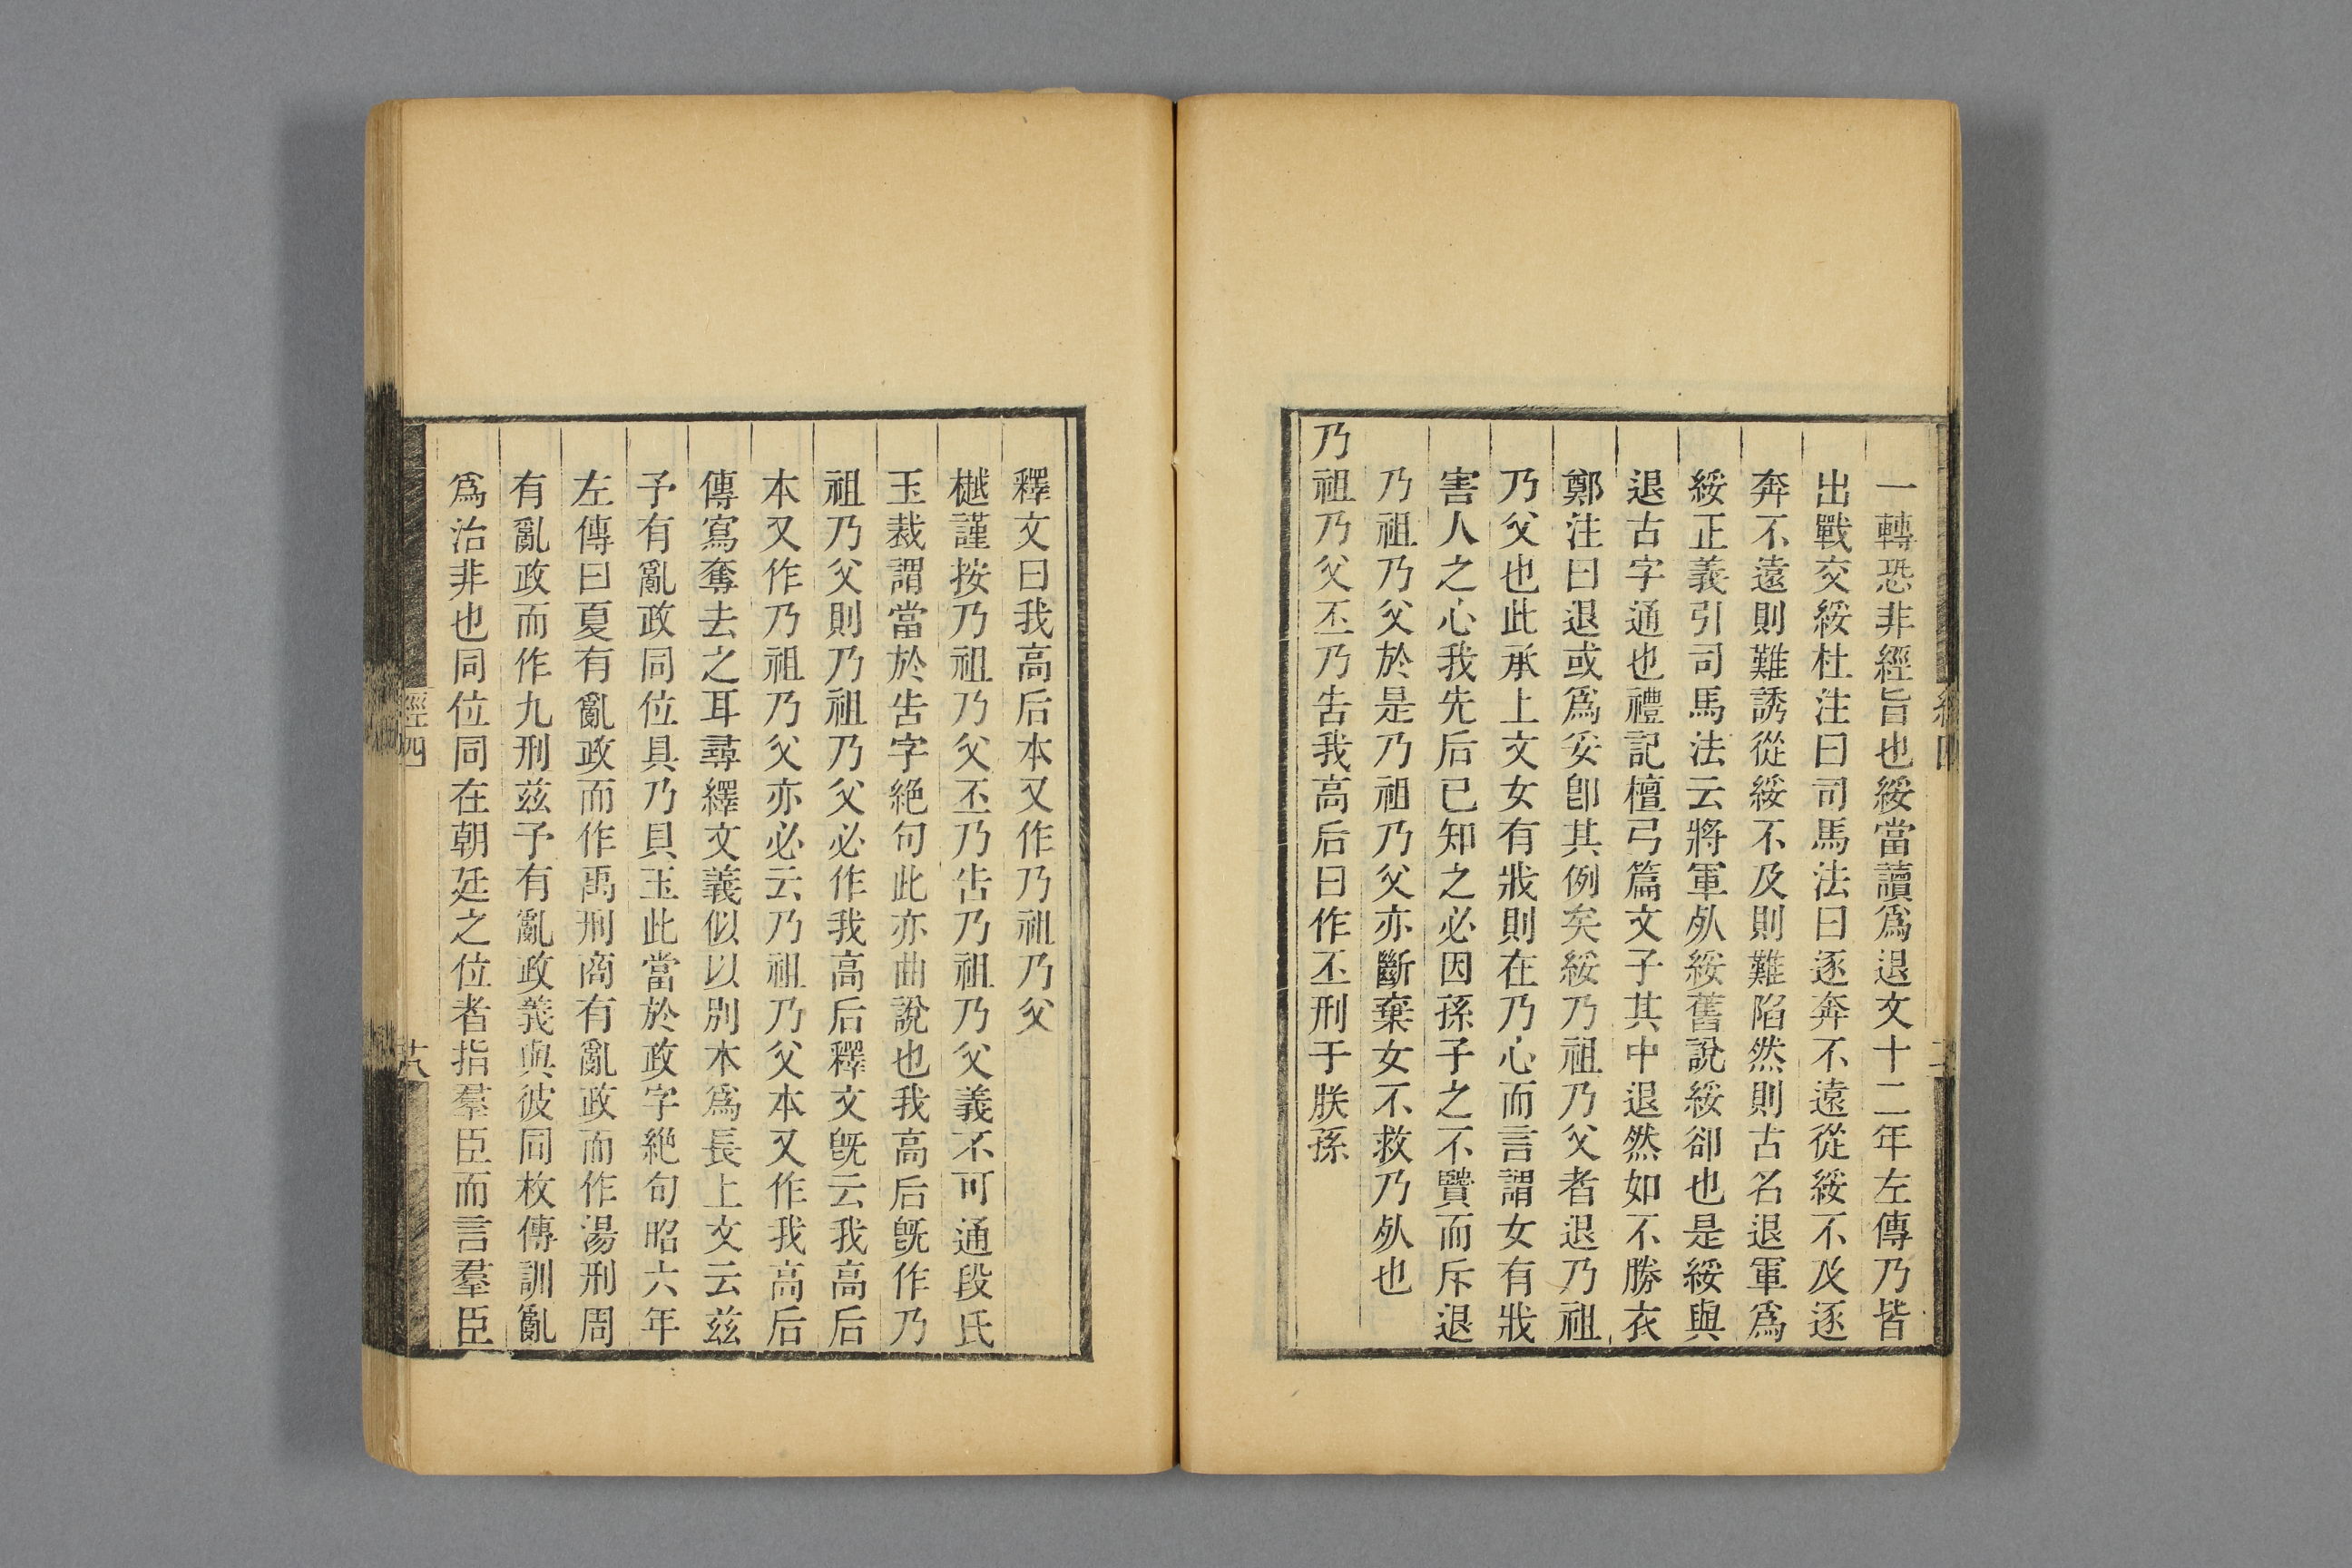 一轉恐非經旨也綏當讀爲退文十二年左傳乃皆
出戰交綏杜注曰司馬法曰逐奔不遠從綏不及逐
奔不遠則難誘從綏不及則難陷然則古名退軍爲
綏正義引司馬法云將軍死綏舊說綏卻也是綏與
退古字通也禮記檀弓篇文子其中退然如不勝衣
鄭注曰退或爲妥卽其例矣綏乃祖乃父者退乃祖
乃父也此承上文女有戕則在乃心而言謂女有戕
害人之心我先后已知之必因孫子之不賢而斥退
乃祖乃父於是乃祖乃父亦斷棄女不救乃死也
乃祖乃父丕乃告我高后曰作丕刑于朕孫
釋文曰我高后本又作乃祖乃父
樾謹按乃祖乃父丕乃告乃祖乃父義不可通段氏
玉裁謂當於告字絕句此亦曲說也我高后旣作乃
祖乃父則乃祖乃父必作我高后釋文旣云我高后
本又作乃祖乃父亦必云乃祖乃父本又作我高后
傳寫奪去之耳尋繹文義似以別本爲長上文云茲
予有亂政同位具乃貝玉此當於政字絕句昭六年
左傳曰夏有亂政而作禹刑商有亂政而作湯刑周
有亂政而作九刑茲予有亂政義與彼同枚傳訓亂
爲治非也同位同在朝廷之位者指羣臣而言羣臣
經四